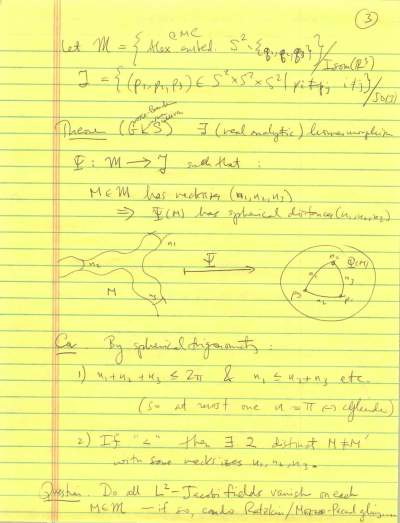 ③
CMC
Let M = { Alex embed. S² - {q₁, q₂, q₃} } / Isom(R³)
J = { (p₁, p₂, p₃) ∈ S² × S² × S² | pᵢ ≠ pⱼ, i ≠ j } / SO(3)
Theorem (GKS) ∃ (real analytic) homeomorphism
Φ : M → J such that :
M ∈ M has necksizes (n₁, n₂, n₃)
⇒ Φ(M) has spherical distances (n₁, n₂, n₃)
n₁
n₂
n₃
M
Φ
Φ(M)
n₁
n₃
n₂
p₃
p₁
Cor. By spherical trigonometry :
1) n₁ + n₂ + n₃ ≤ 2π & n₁ ≤ n₂ + n₃ etc.
(so at most one n = π ↔ cylinder)
2) If "<" then ∃ 2 distinct M ≠ M'
with same necksizes n₁, n₂, n₃.
Question. Do all L²-Jacobi fields vanish on each
M ∈ M — if so, can do Ratzkin / Mazzeo-Pacard gluing